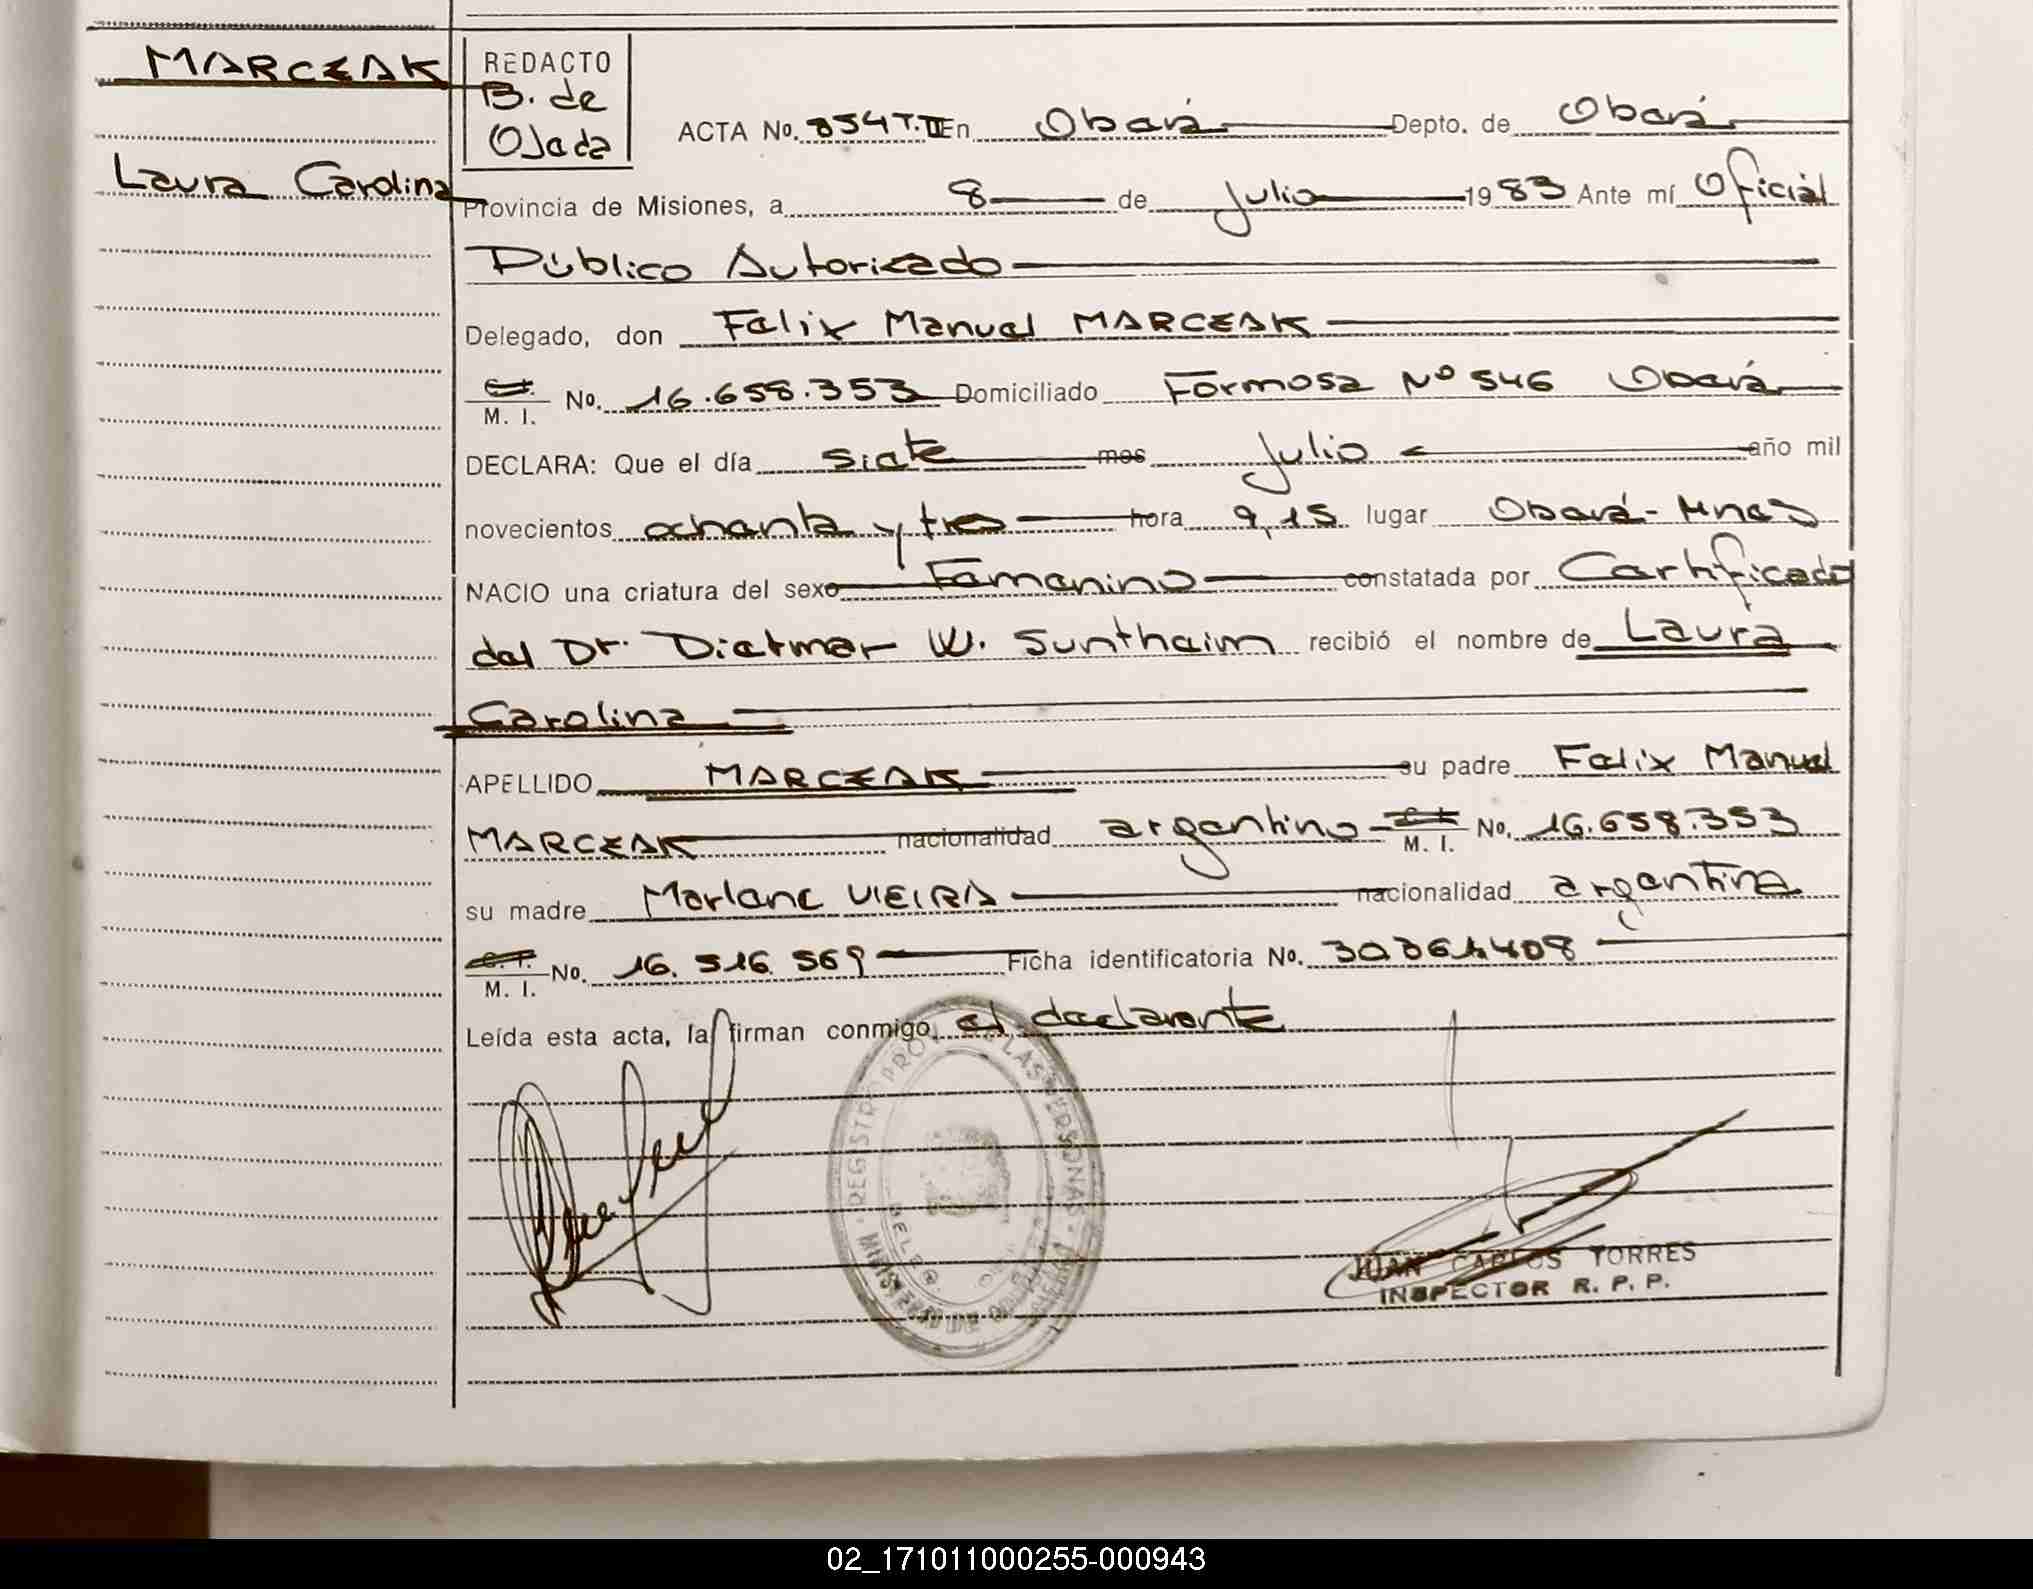 MARCZAK
Laura Carolina
REDACTO
B. de
Ojeda
ACTA No. 854 T. III En Oberá Depto. de Oberá
Provincia de Misiones, a 8 de Julio 1983 Ante mí Oficial
Público Autorizado
Delegado, don Felix Manuel MARCZAK
C.I. M. I. No. 16.658.353 Domiciliado Formosa Nº 546 Oberá
DECLARA: Que el día siete mes Julio año mil
novecientos ochenta y tres hora 9,15 lugar Oberá - Mnes
NACIO una criatura del sexo Femenino constatada por Certificado
del Dr. Dietmar W. Suntheim recibió el nombre de Laura
Carolina
APELLIDO MARCZAK su padre Felix Manuel
MARCZAK nacionalidad argentino C.I. M. I. No. 16.658.353
su madre Marlene VIEIRA nacionalidad argentina
C.I. M. I. No. 16.516.569 Ficha identificatoria No. 30.361.408
Leída esta acta, la firman conmigo, el declarante
REGISTRO PROV. LAS PERSONAS
DELEG.
MINISTERIO DE
JUAN CARLOS TORRES
INSPECTOR R. P. P.
02_171011000255-000943